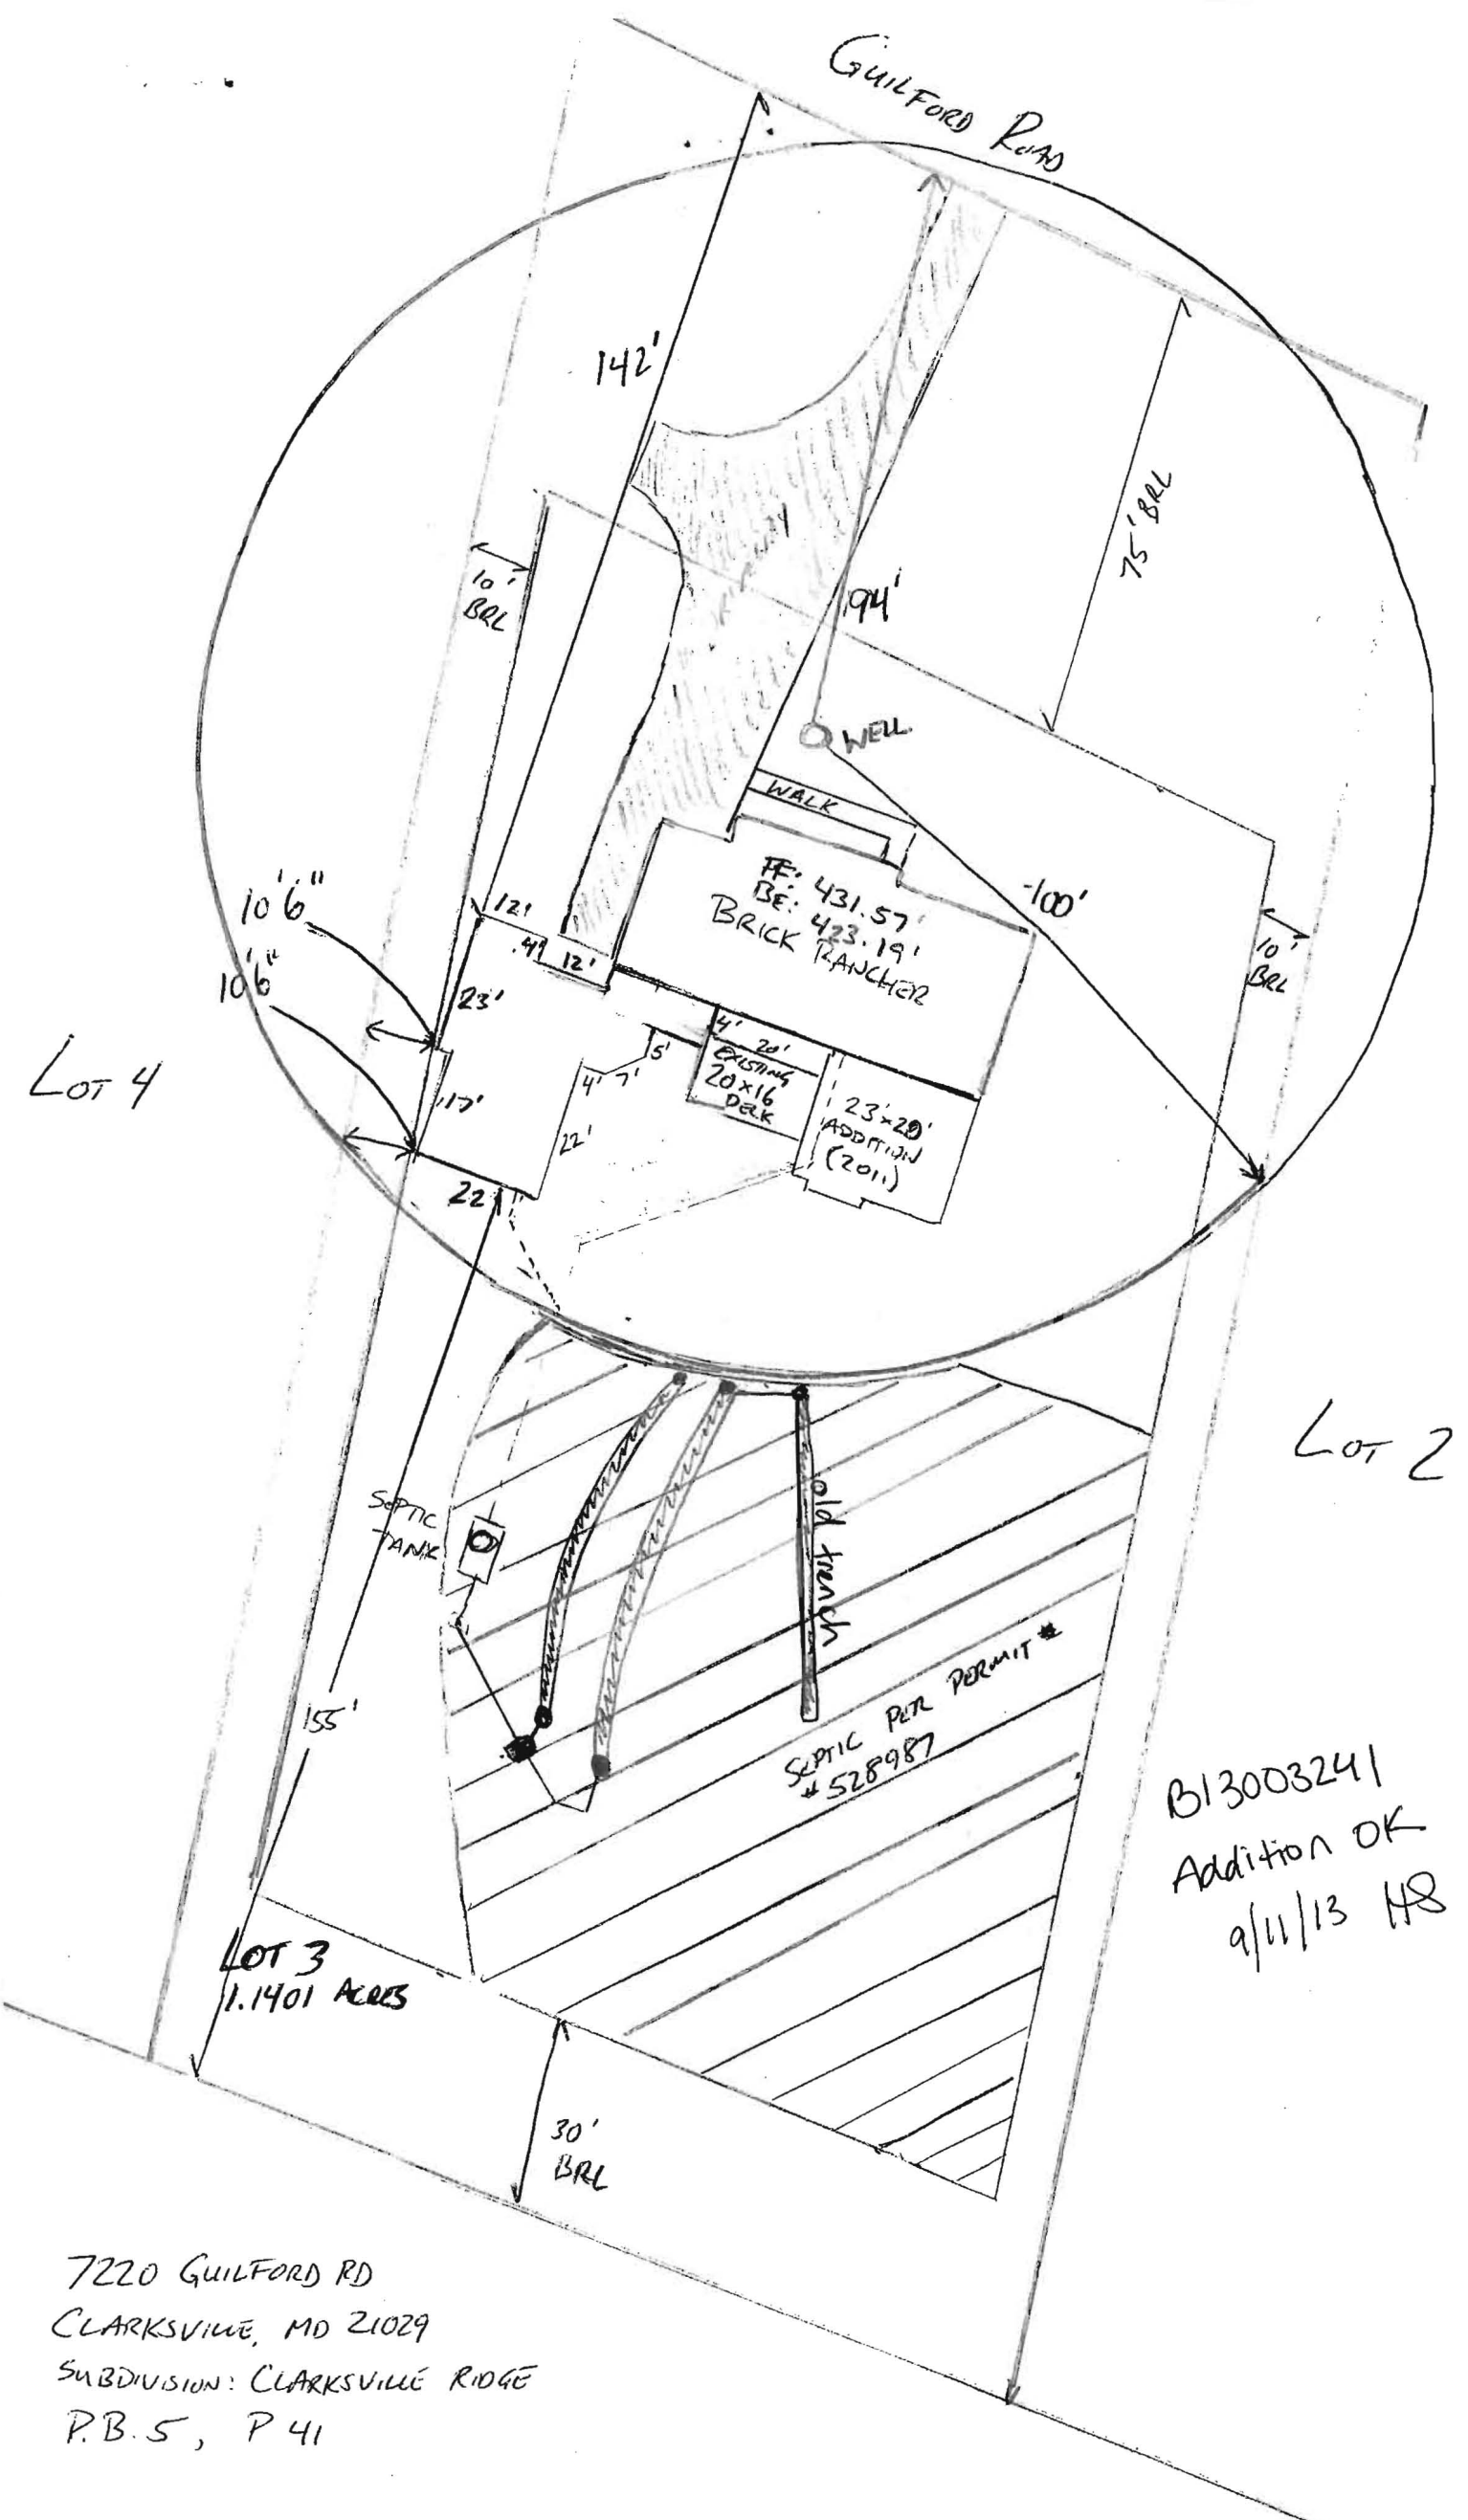 GUILFORD ROAD
142'
75' BRL
10'
BRL
94'
WELL
WALK
FF: 431.57'
BE: 423.19'
BRICK RANCHER
-100'
10'
BRL
10'6"
10'6"
12'
4'
12'
23'
17'
22'
22'
4'
7'
5'
4'
20'
EXISTING
20x16
DECK
23'x20'
ADDITION
(2011)
LOT 4
LOT 2
SEPTIC
TANK
old trench
SEPTIC PER PERMIT #
#528987
155'
B13003241
Addition OK
9/11/13 HS
LOT 3
1.1401 ACRES
30'
BRL
7220 GUILFORD RD
CLARKSVILLE, MD 21029
SUBDIVISION: CLARKSVILLE RIDGE
P.B. 5, P 41